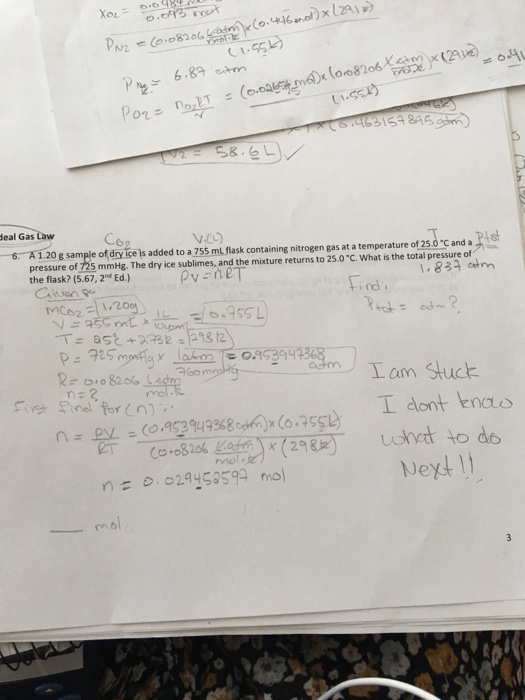 X02 =
0.093 mol
PN2 = (0.08206 L·atm/mol·k) x (0.446 mol) x (291k)
(1.55L)
PN2 = 6.87 atm
PO2 = nO2RT/V =
(1.55L)
x (0.463157895 atm)
V2 = 58.6 L ✓
deal Gas Law
CO2 V.(L) T Ptot
6. A 1.20 g sample of dry ice is added to a 755 mL flask containing nitrogen gas at a temperature of 25.0 °C and a
pressure of 725 mmHg. The dry ice sublimes, and the mixture returns to 25.0 °C. What is the total pressure of
the flask? (5.67, 2nd Ed.) PV=nRT 1.837 atm
Given:
mCO2 = 1.20g
V = 755 mL x = 0.755L
T = 25°C + 273k = 298k
P = 725 mmHg x 1atm/760mmHg = 0.953947368 atm
R = 0.08206 L·atm/mol·k
n = ?
Find:
Ptot = atm?
First find for (n):
n = PV/RT = (0.953947368 atm) x (0.755L)
(0.08206 L·atm/mol·k) x (298k)
n = 0.029452597 mol
mol
I am Stuck
I dont know
what to do
Next!!
3